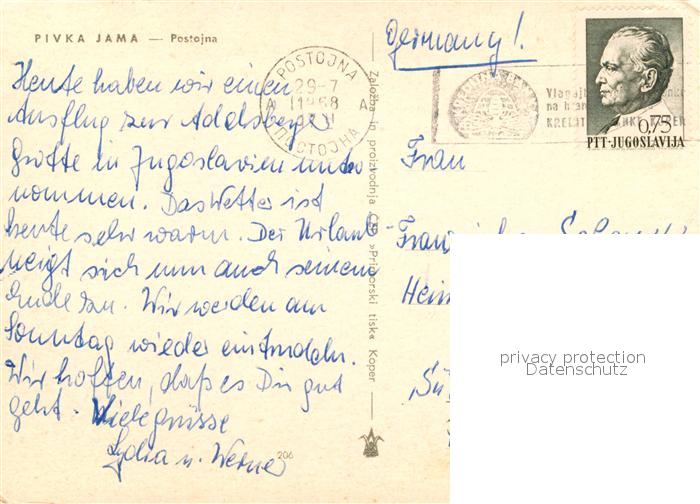 PIVKA JAMA — Postojna
Heute haben wir einen
Ausflug zur Addelsberger
Grotte in Jugoslavien unter
nommen. Das Wetter ist
heute sehr warm. Der Urlaub
neigt sich nun auch seinem
Ende zu. Wir werden am
Sonntag wieder eintrudeln.
Wir hoffen, daß es Dir gut
geht. Viele Grüsse
Lydia u. Werner
206
Založba in proizvodnja ČZP »Primorski tisk« Koper
Germany!
POSTOJNA
29-7
1968
A A
POSTOJNA
Vlagajt
na hran
KREDIT
0,75
PTT-JUGOSLAVIJA
Frau
Hein
privacy protection
Datenschutz